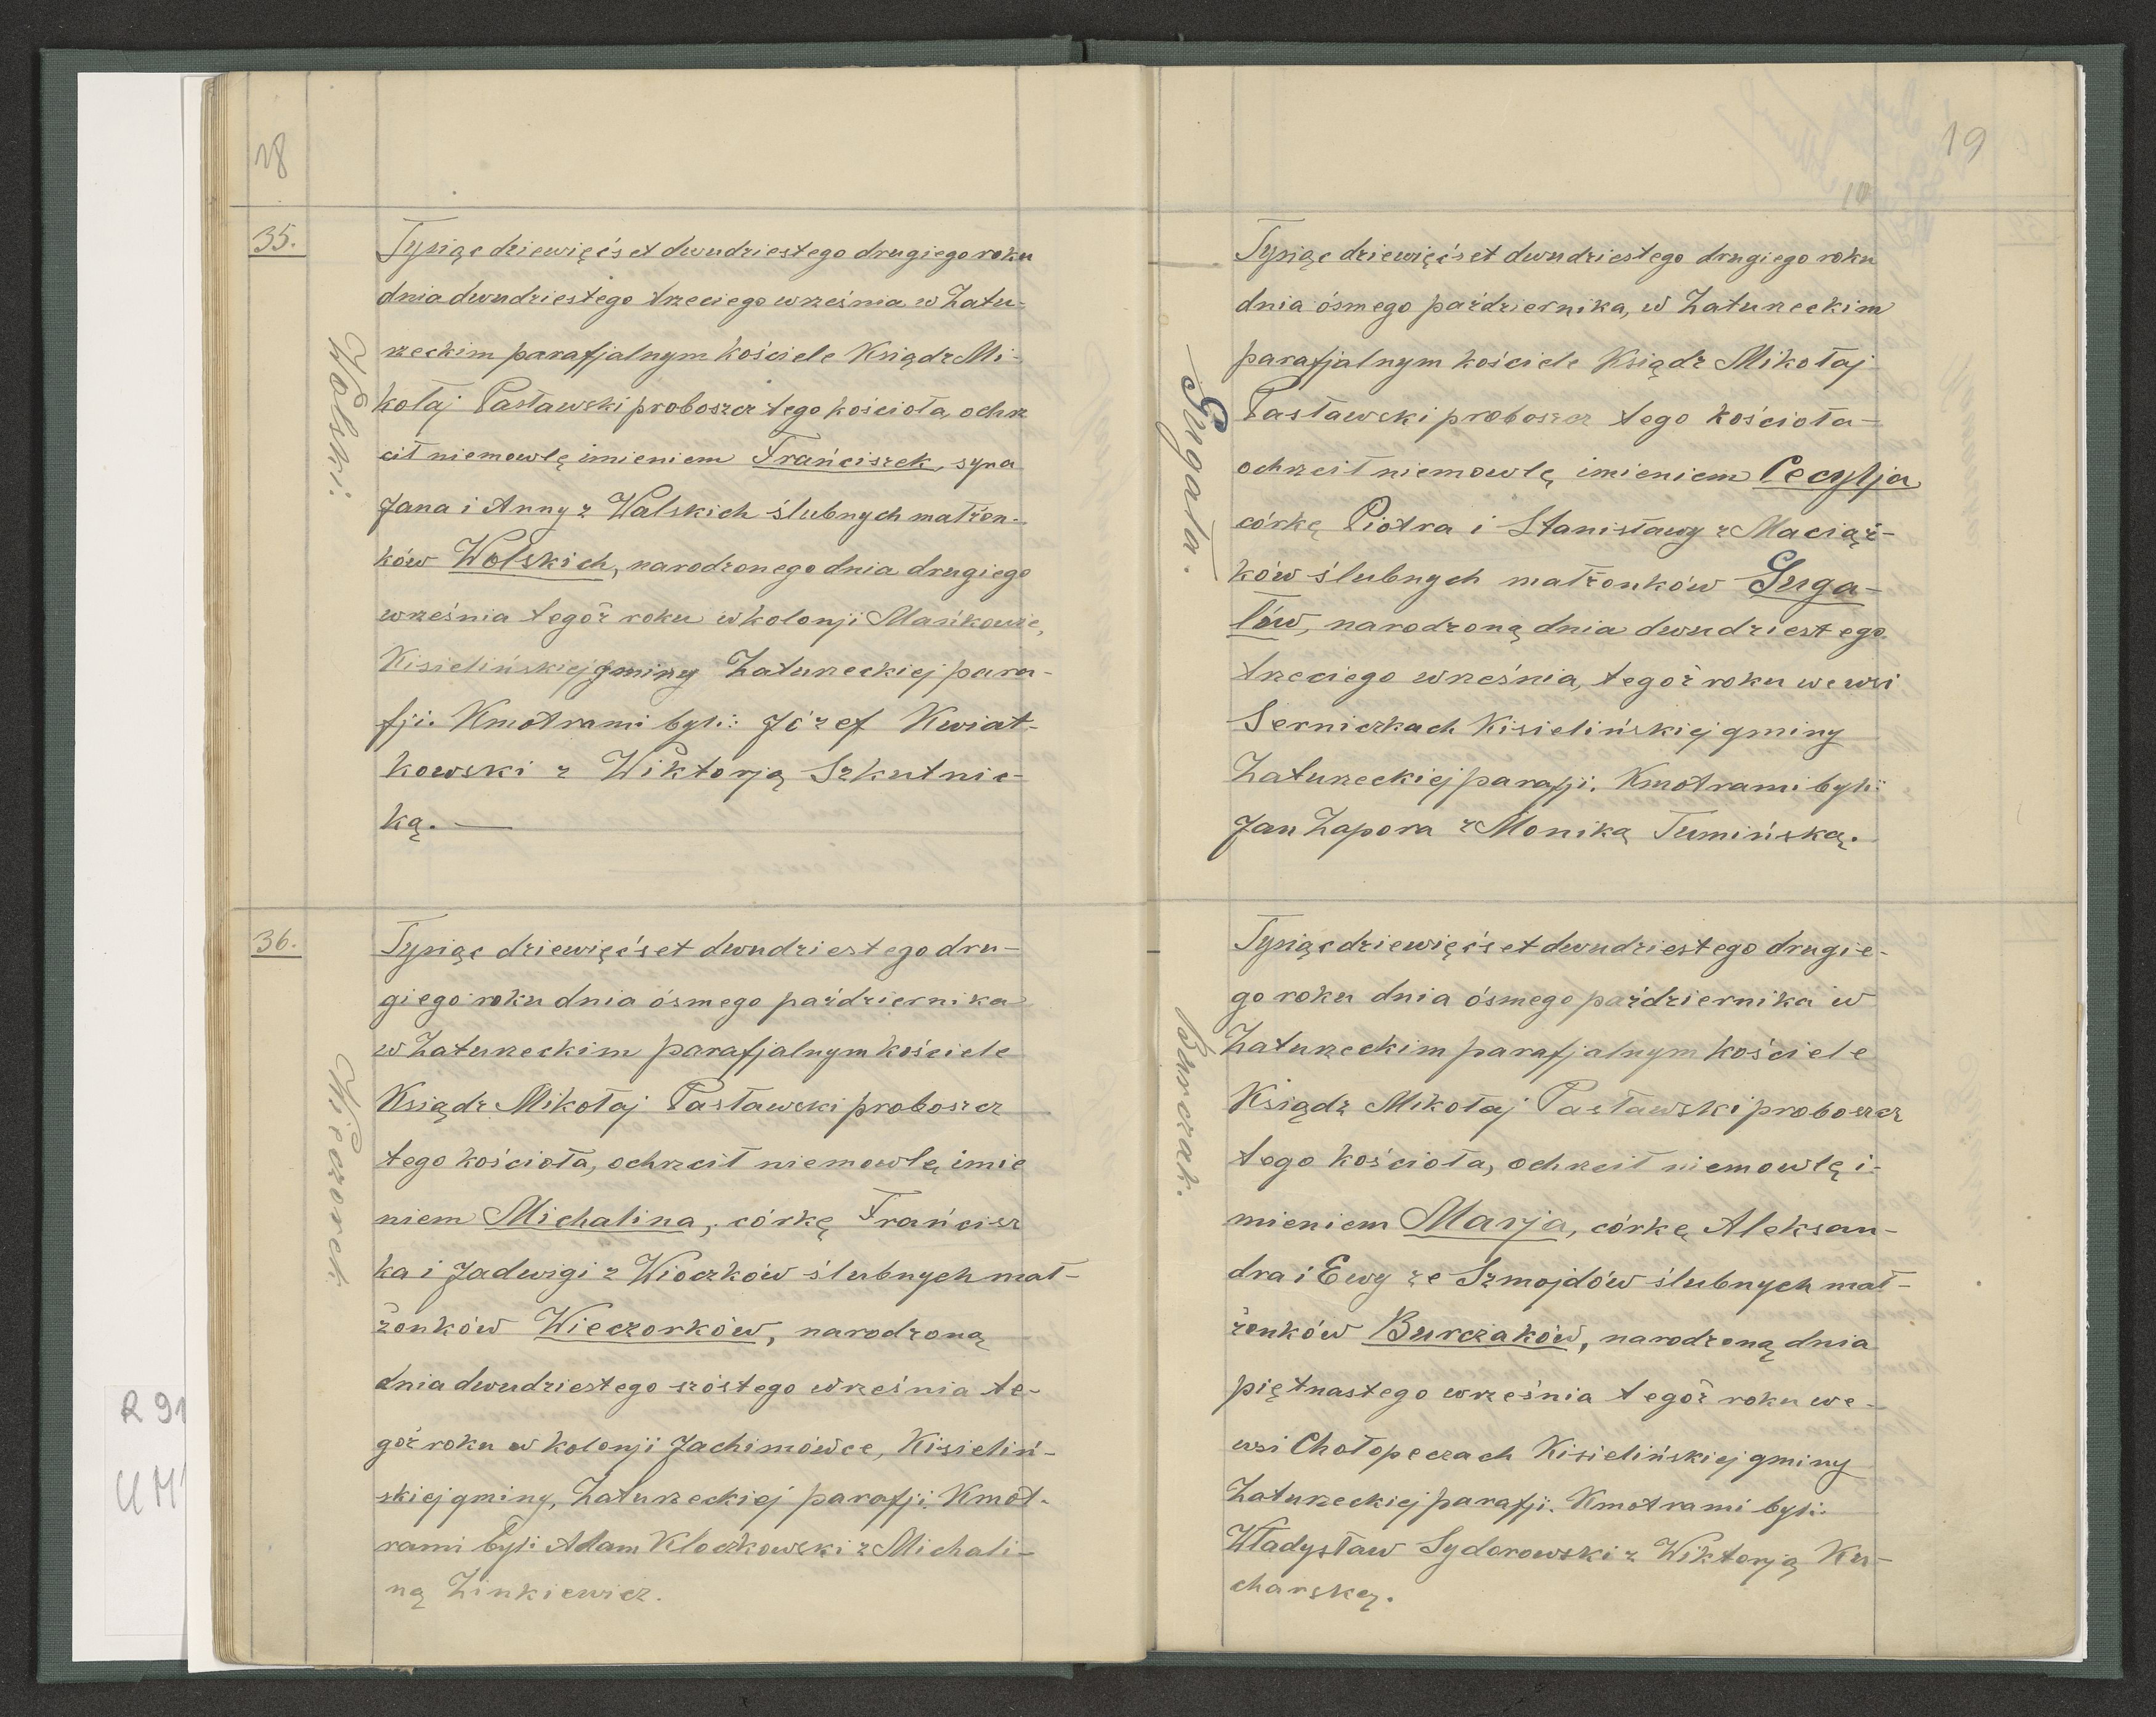 18
35.
Wolski.
Tysiąc dziewięćset dwudziestego drugiego roku
dnia dwudziestego trzeciego września w Zatu-
rzeckim parafjalnym kościele Ksiądz Mi-
kołaj Pasławski proboszcz tego kościoła, ochrz
cił niemowlę imieniem Frańciszek, syna
Jana i Anny z Walskich ślubnych małżon-
ków Wolskich, narodzonego dnia drugiego
września tegoż roku w kolonji Mańkowie,
Kisielińskiej gminy Zaturzeckiej para-
fji. Kmotrami byli: Józef Kwiat-
kowski z Wiktorją Szkutnic-
ką.
36.
Wieczorek.
Tysiąc dziewięćset dwudziestego dru-
giego roku dnia ósmego października
w Zaturzeckim parafjalnym kościele
Ksiądz Mikołaj Pasławski proboszcz
tego kościoła, ochrzcił niemowlę imie
niem Michalina, córkę Frańcisz
ka i Jadwigi z Wioczków ślubnych mał-
żonków Wieczorków, narodzoną
dnia dwudziestego szóstego września te-
goż roku w kolonji Jachimówce, Kisieliń-
skiej gminy, Zaturzeckiej parafji. Kmot-
rami byli Adam Kloczkowski z Michali-
ną Zinkiewicz.
R 91
UM
19
10
Gugała.
Tysiąc dziewięćset dwudziestego drugiego roku
dnia ósmego października, w Zaturzeckim
parafjalnym kościele Ksiądz Mikołaj
Pasławski proboszcz tego kościoła
ochrzcił niemowlę imieniem Cecylja
córkę Piotra i Stanisławy z Maciąż-
ków ślubnych małżonków Guga-
łów, narodzoną dnia dwudziestego
trzeciego września, tegoż roku we wsi
Serniczkach Kisielińskiej gminy
Zaturzeckiej parafji. Kmotrami byli:
Jan Zapora z Moniką Tumińską.
Burczak.
Tysiąc dziewięćset dwudziestego drugie-
go roku dnia ósmego października w
Zaturzeckim parafjalnym kościele
Ksiądz Mikołaj Pasławski proboszcz
tego kościoła, ochrzcił niemowlę i-
mieniem Marja, córkę Aleksan-
dra i Ewy ze Szmojdów ślubnych mał-
żonków Burczaków, narodzoną dnia
piętnastego września tegoż roku we-
wsi Chołopeczach Kisielińskiej gminy
Zaturzeckiej parafji. Kmotrami byli:
Władysław Sydorowski z Wiktorją Ku-
charską.